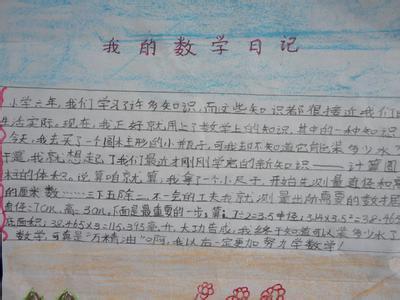 我的数学日记
小学六年,我们学习了许多知识,而这些知识都很接近我们的
生活实际。现在,我正好就用上了数学上的知识,其中的一种知识。
今天,我去买了一个圆柱形的小瓶子,可我却不知道它能装多少水了
于是,我就想起了我们最近才刚刚学完的新知识——计算圆
柱的体积。说算咱就算,我拿了一个小尺子,开始先测量直径和高
的厘米数……三下五除二,不一会的工夫我就测量出所需要的数据
直径:7cm,高:3cm,下面是最重要的一步:算,7÷2=3.5 半径;3.14×3.5²=38.465
底面积;38.465×3=115.395毫升。大功告成,我终于知道可以装多少水了
数学,可真是"万精油"啊,我以后一定更加努力学数学!